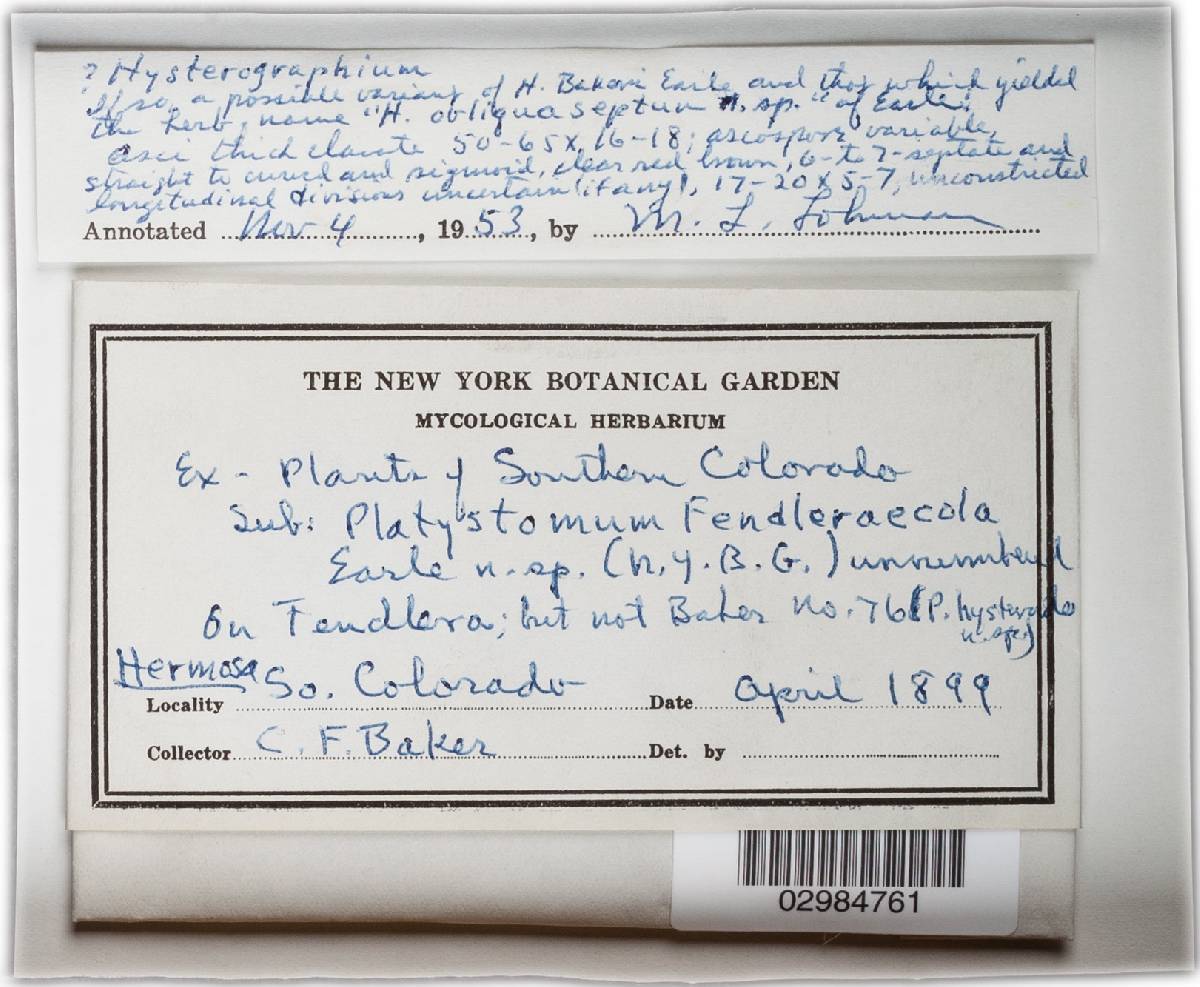 ? Hysterographium
If so, a possible variant of H. Bakeri Earle and thus which yielded
the herb. name "H. obliquaseptum n. sp." of Earle.
asci thick clavate 50-65 x 16-18; ascospore variable,
straight to curved and sigmoid, clear red brown, 6- to 7-septate and
longitudinal divisions uncertain (if any), 17-20 x 5-7, unconstricted
Annotated Nov 4, 1953, by M. L. Lohman
THE NEW YORK BOTANICAL GARDEN
MYCOLOGICAL HERBARIUM
Ex - Plants of Southern Colorado
Sub: Platystomum Fendleraecola
Earle n. sp. (N.Y.B.G.) unnumbered
On Fendlera; but not Baker No. 76 (P.
n. spe)
Hermosa So. Colorado
Locality Date April 1899
Collector C. F. Baker Det. by
02984761